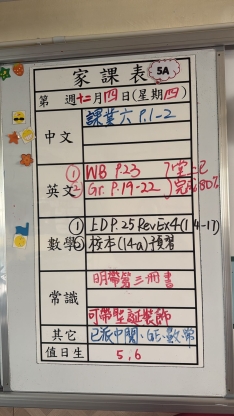 家課表 5A
第 週 十二月四日(星期四)
中文 課業六 P.1-2
英文 ① WB P.23
② Gr. P.19-22 ) 完成80%
數學 ① ED P.25 RevEx4(14-17)
② 校本(14a)預習
常識 明帶第三冊書
可帶聖誕裝飾
其它 已派中
值日生 5,6